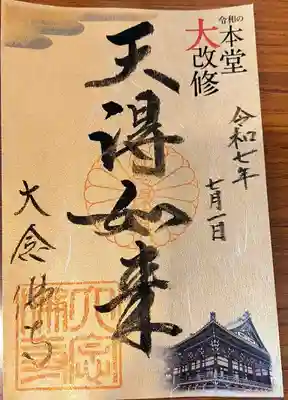 令和の
本堂
大改修
令和七年
七月一日
天得如来
大念佛寺